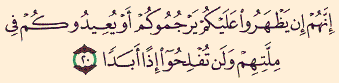 إِنَّهُمْ إِن يَظْهَرُوا۟ عَلَيْكُمْ يَرْجُمُوكُمْ أَوْ يُعِيدُوكُمْ فِى
مِلَّتِهِمْ وَلَن تُفْلِحُوٓا۟ إِذًا أَبَدًا ٢٠